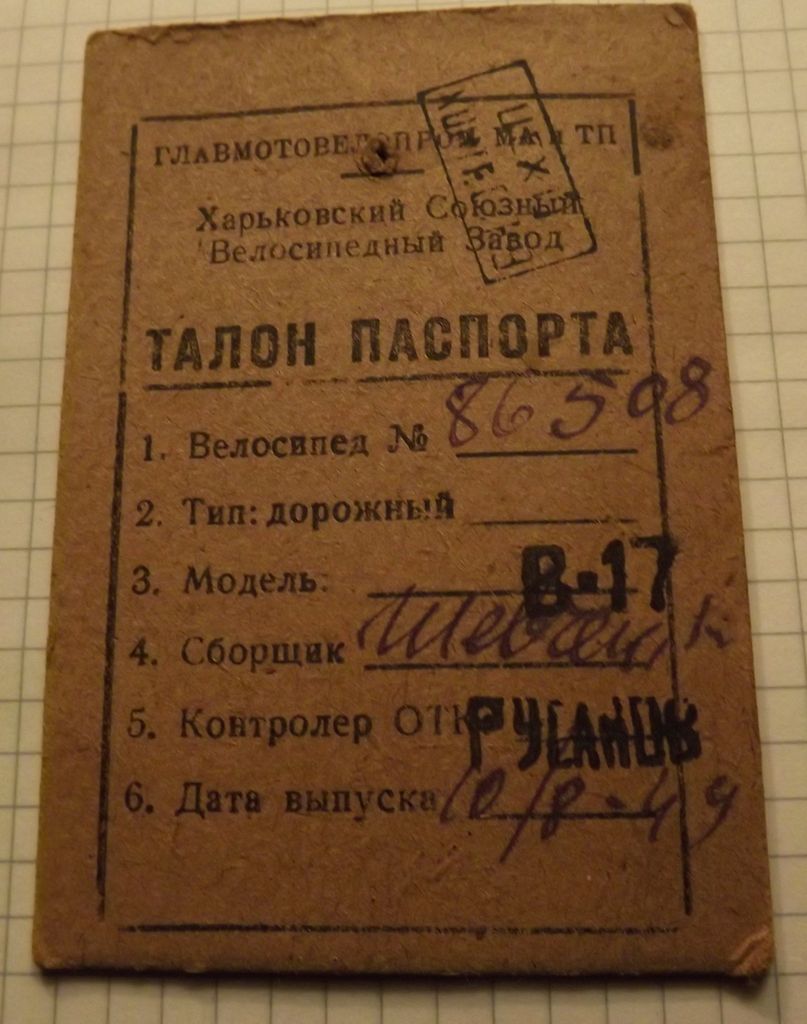 ГЛАВМОТОВЕЛОПРОМ МА и ТП
Харьковский Союзный
Велосипедный Завод
ТАЛОН ПАСПОРТА
1. Велосипед № 86508
2. Тип: дорожный
3. Модель: В-17
4. Сборщик
5. Контролер ОТК РУСАНОВ
6. Дата выпуска 10/8-49